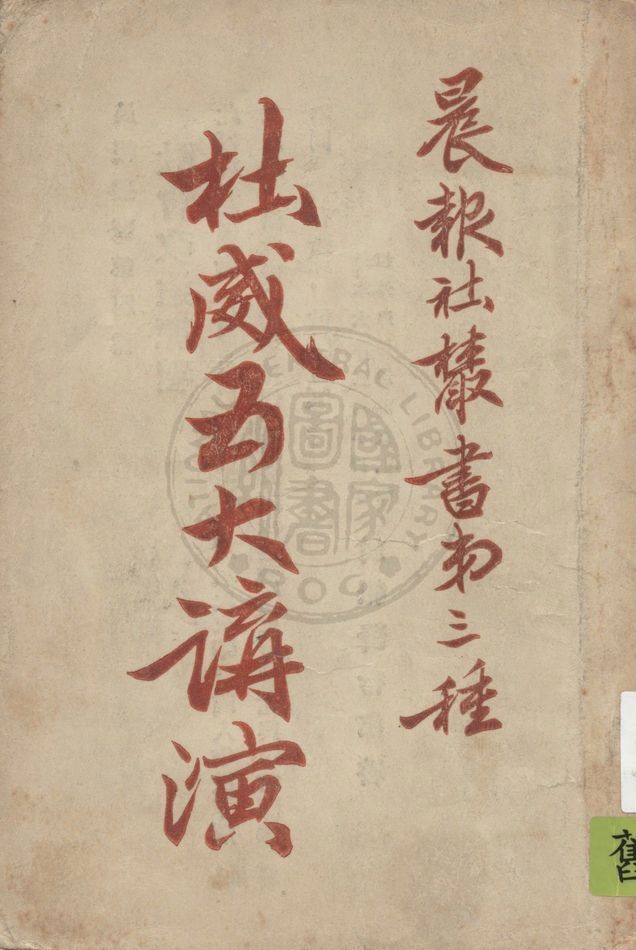 晨報社叢書第三種
杜威五大講演
國家圖書
GENERAL LIBRARY
舊